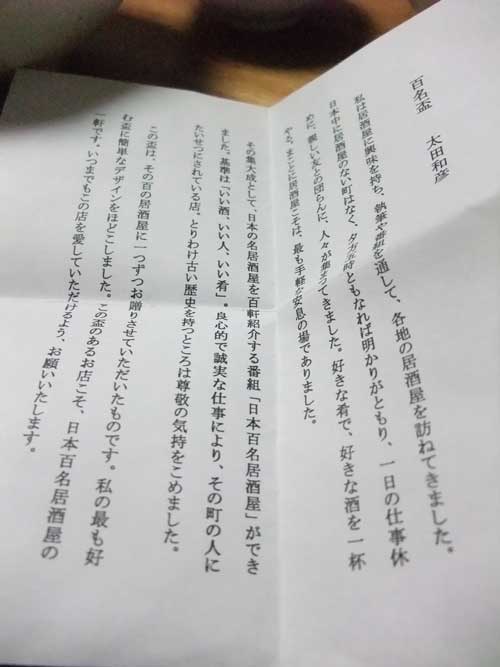 百名盃　太田和彦
私は居酒屋に興味を持ち、執筆や番組を通して、各地の居酒屋を訪ねてきました。
日本中に居酒屋のない町はなく、夕方五時ともなれば明かりがともり、一日の仕事休
めに、親しい友との団らんに、人々が集まってきました。好きな肴で、好きな酒を一杯
やる。まことに居酒屋こそは、最も手軽な安息の場でありました。
その集大成として、日本の名居酒屋を百軒紹介する番組「日本百名居酒屋」ができ
ました。基準は「いい酒、いい人、いい肴」。良心的で誠実な仕事により、その町の人に
たいせつにされている店。とりわけ古い歴史を持つところは尊敬の気持をこめました。
この盃は、その百の居酒屋に一つずつお贈りさせていただいたものです。私の最も好
む盃に簡単なデザインをほどこしました。この盃のあるお店こそ、日本百名居酒屋の
一軒です。いつまでもこの店を愛していただけるよう、お願いいたします。